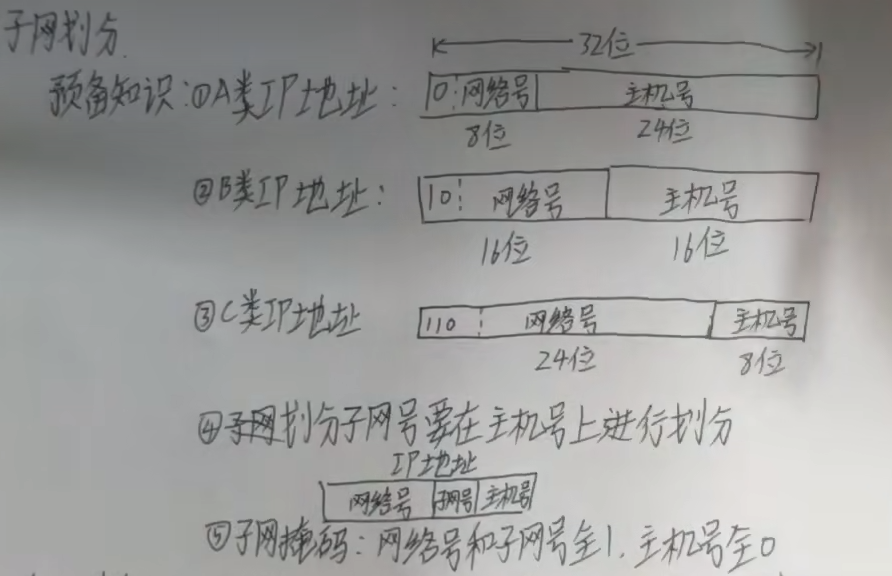 子网划分
32位
预备知识:①A类IP地址: 0 网络号 主机号
8位 24位
②B类IP地址: 10 网络号 主机号
16位 16位
③C类IP地址 110 网络号 主机号
24位 8位
④子网划分子网号要在主机号上进行划分
IP地址
网络号 子网号 主机号
⑤子网掩码:网络号和子网号全1.主机号全0